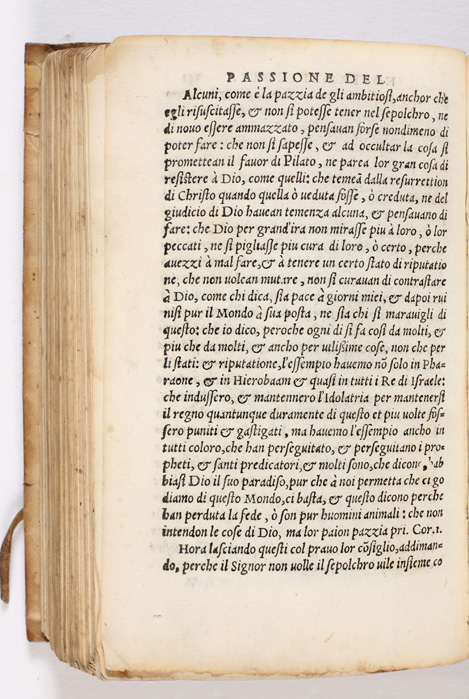 PASSIONE DEL
Alcuni, come è la pazzia de gli ambitiosi, anchor che
egli risuscitasse, & non si potesse tener nel sepolchro, ne
di nouo essere ammazzato, pensauan forse nondimeno di
poter fare: che non si sapesse, & ad occultar la cosa si
promettean il fauor di Pilato, ne parea lor gran cosa di
resistere à Dio, come quelli: che temeã dalla resurrettion
di Christo quando quella ò veduta fosse, ò creduta, ne del
giudicio di Dio hauean temenza alcuna, & pensauano di
fare: che Dio per grand'ira non mirasse piu à loro, ò lor
peccati, ne si pigliasse piu cura di loro, ò certo, perche
auezzi à mal fare, & à tenere un certo stato di riputatio
ne, che non uolcan mutare, non si curauan di contrastare
à Dio, come chi dica, sia pace à giorni miei, & dapoi rui
nisi pur il Mondo à sua posta, ne sia chi si marauigli di
questo: che io dico, peroche ogni di si fa cosi da molti, &
piu che da molti, & ancho per uilißime cose, non che per
li stati: & riputatione, l'essempio hauemo nõ solo in Pha-
raone, & in Hierobaam & quasi in tutti i Re di Israele:
che indussero, & mantennero l'Idolatria per mantenersi
il regno quantunque duramente di questo et piu uolte fos-
sero puniti & gastigati, ma hauemo l'essempio ancho in
tutti coloro, che han perseguitato, & perseguitano i pro-
pheti, & santi predicatori, & molti sono, che dicono, hab
biasi Dio il suo paradiso, pur che à noi permetta che ci go
diamo di questo Mondo, ci basta, & questo dicono perche
han perduta la fede, ò son pur huomini animali: che non
intendon le cose di Dio, ma lor paion pazzia pri. Cor. 1.
Hora lasciando questi col prauo lor cõsiglio, addiman-
do, perche il Signor non uolle il sepolchro uile insieme co